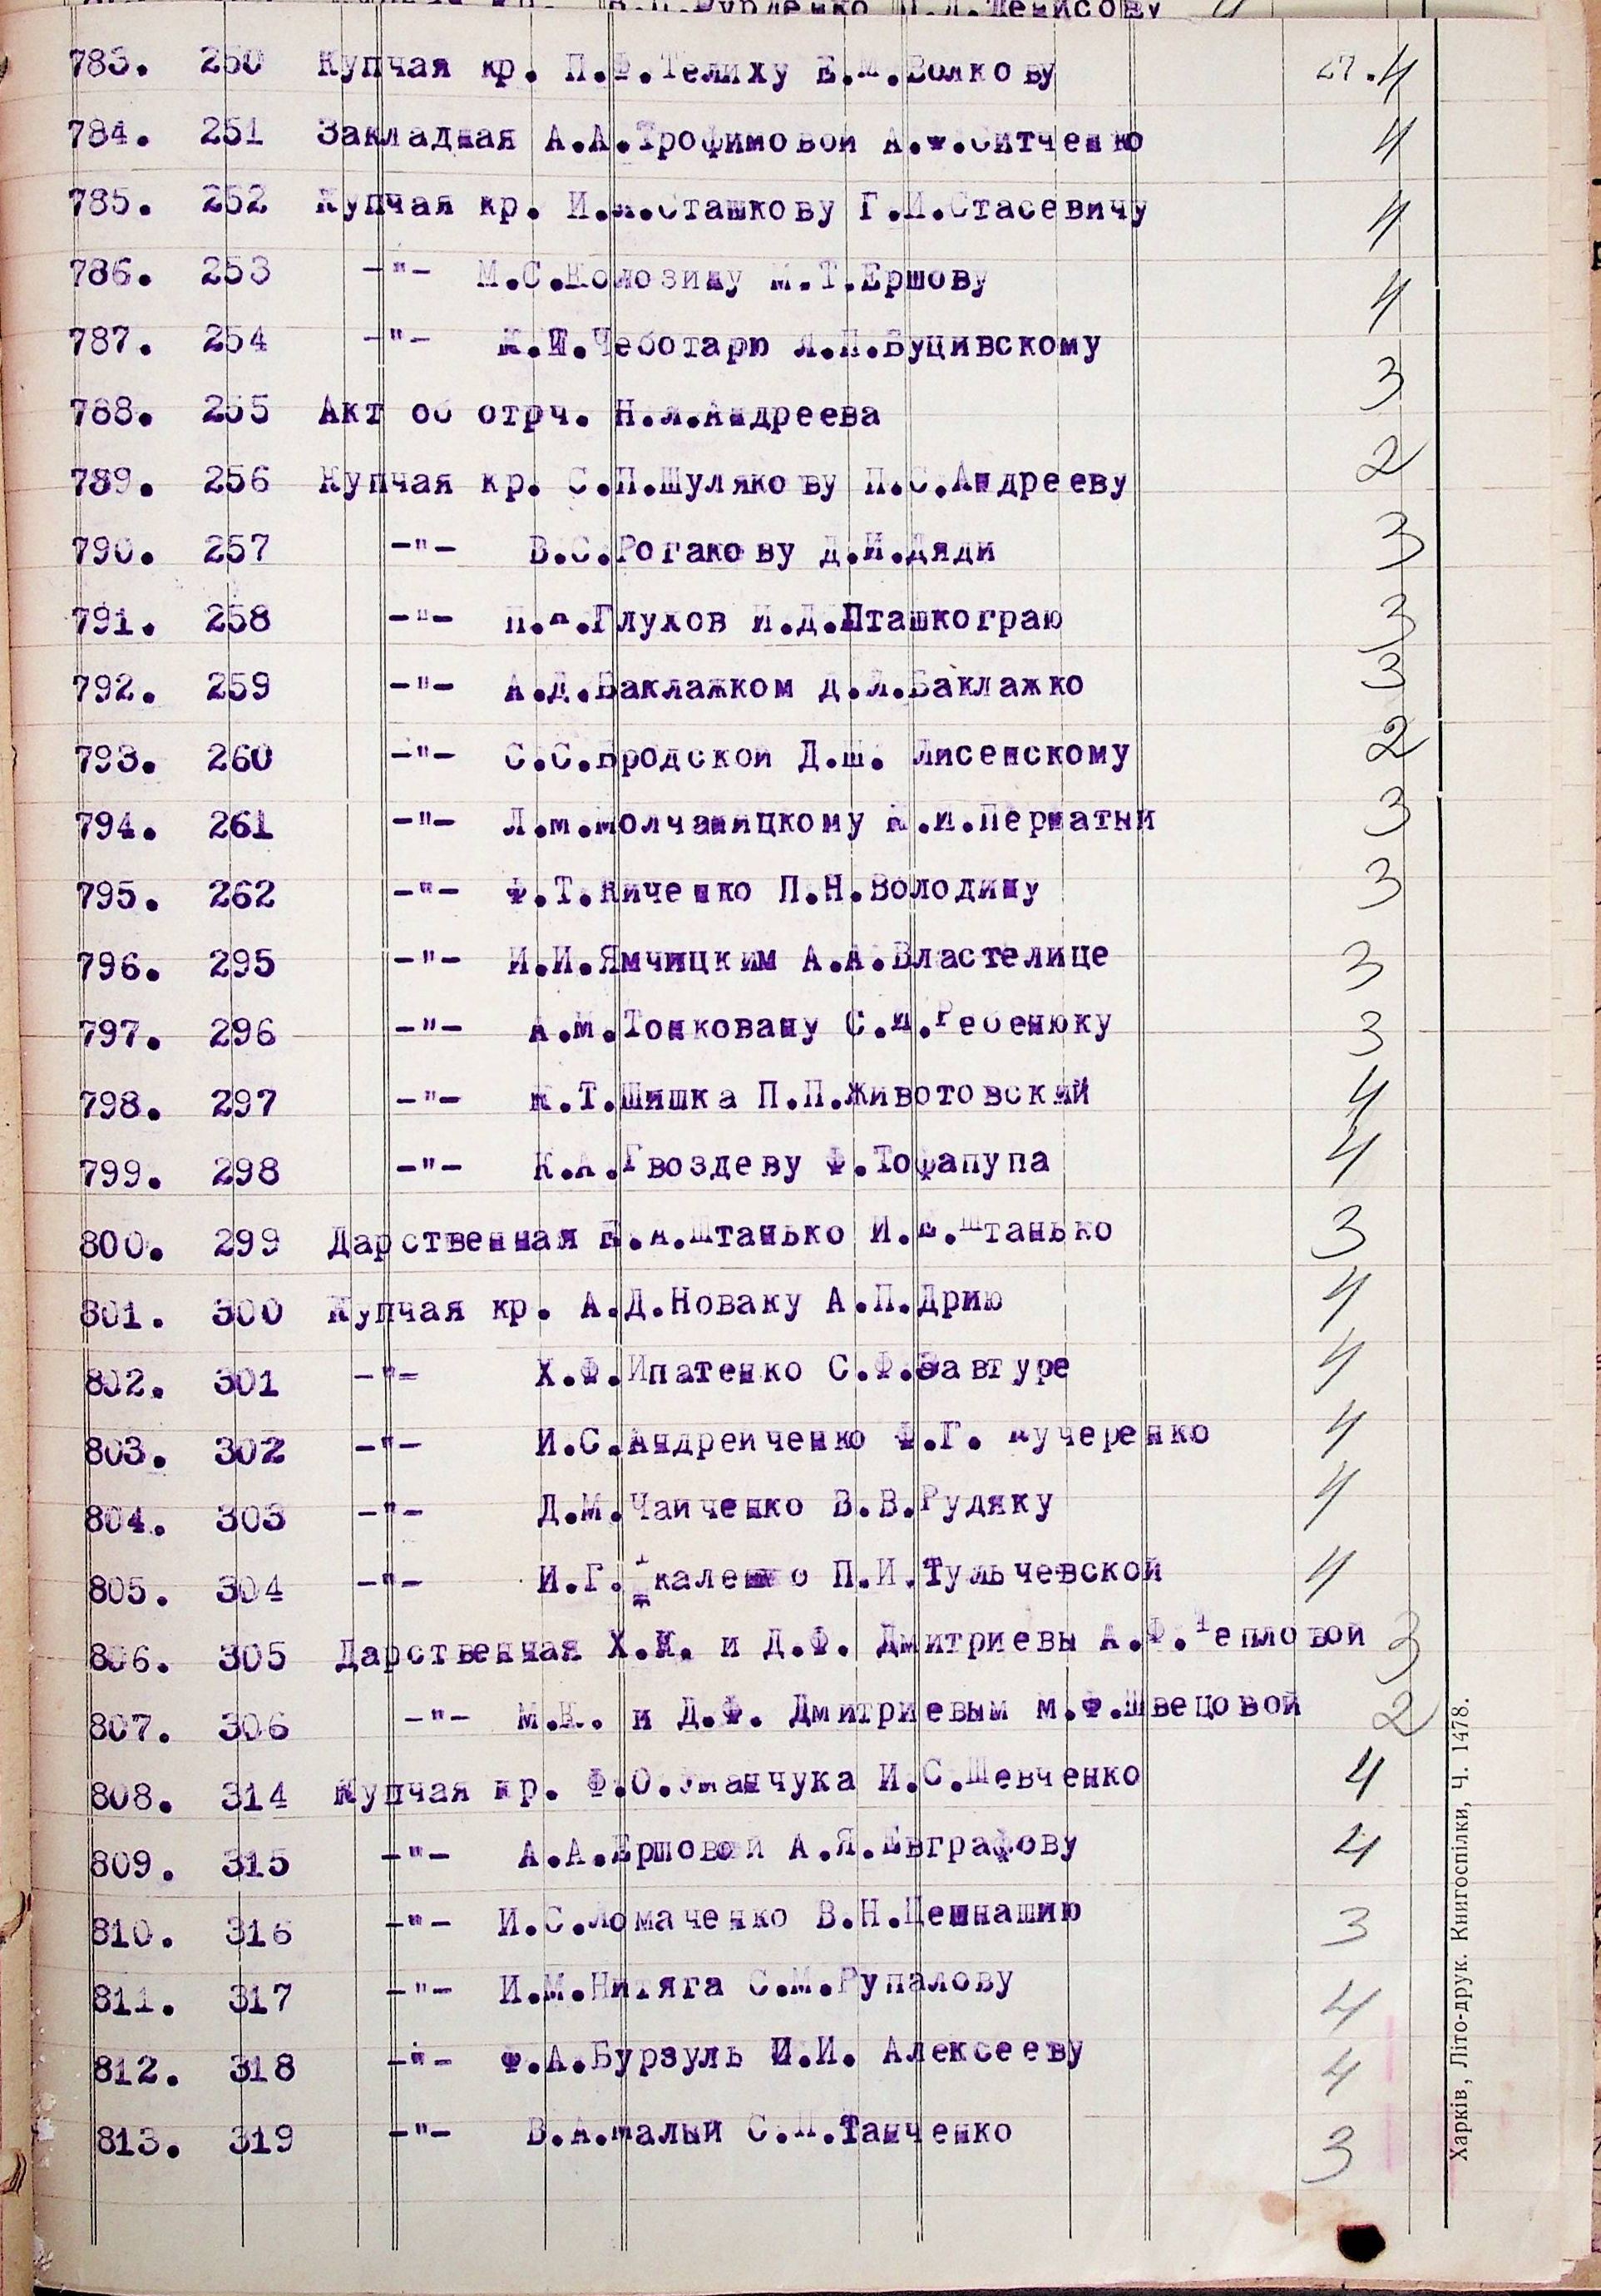 783. 250 Купчая кр. П.Ф.Телиху Е.М.Волкову 27. 4
784. 251 Закладная А.А.Трофимовой А.Ф.Ситченко 4
785. 252 Купчая кр. И. Сташкову Г.И.Стасевичу 4
786. 253 -"- М.С.Колозину М.Т.Ершову 4
787. 254 -"- Чеботарю Буцивскому 3
788. 255 Акт об отрч. Андреева 2
789. 256 Купчая кр. С.П.Шулякову П.С.Андрееву 3
790. 257 -"- В.С.Рогакову Д.И.Дяди 3
791. 258 -"- Глухов И.Д.Пташкограю 3
792. 259 -"- А.Д.Баклажком Д.Л.Баклажко 2
793. 260 -"- С.С.Бродской Д.Ш. Лисенскому 3
794. 261 -"- Л.М.Молчаницкому Перматый 3
795. 262 -"- Ф.Т.Киченко П.Н.Володину 3
796. 295 -"- И.И.Ямчицким А.А.Властелице 3
797. 296 -"- А.М.Тонковану С. Ребенюку 4
798. 297 -"- К.Т.Шишка П.П.Животовский 4
799. 298 -"- К.А.Гвоздеву Ф.Тофапупа 3
800. 299 Дарственная Штанько Штанько 4
801. 300 Купчая кр. А.Д.Новаку А.П.Дрию 4
802. 301 -"- Х.Ф.Ипатенко С.Ф.Завгуре 4
803. 302 -"- И.С.Андрейченко Ф.Г. Кучеренко 4
804. 303 -"- Д.М.Чайченко В.В.Рудяку 4
805. 304 -"- И.Г. П.И.Тульчевской
806. 305 Дарственная Х.И. и Д.Ф. Дмитриевы А.Ф.Тепловой 3
807. 306 -"- М.К. и Д.Ф. Дмитриевым М.Ф.Швецовой 2
808. 314 Купчая кр. Ф.О.Уманчука И.С.Шевченко 4
809. 315 -"- А.А.Ершовой А.Я.Евграфову 4
810. 316 -"- И.С.Ломаченко В.Н.Цешнашию 3
811. 317 -"- И.М.Нитяга С.М.Рупалову 4
812. 318 -"- Ф.А.Бурзуль И.И. Алексееву 4
813. 319 -"- В.А.Малый С.П.Танченко 3
Харків, Літо-друк. Книгоспілки, Ч. 1478.